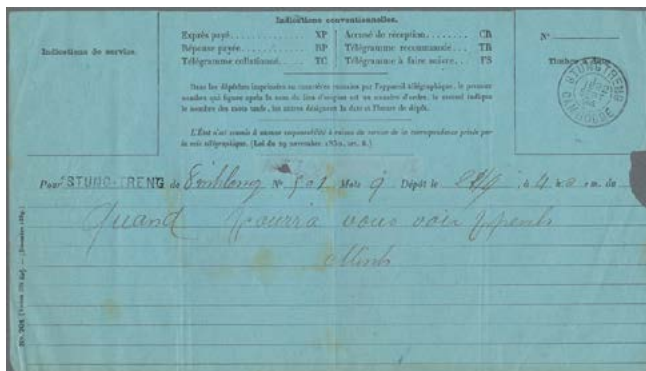 Indications conventionnelles.
Indications de service.
Exprès payé XP
Réponse payée RP
Télégramme collationné TC
Accusé de réception CR
Télégramme recommandé TR
Télégramme à faire suivre FS
N°
Timbre à date
STUNG-TRENG
CAMBODGE
Dans les dépêches imprimées en caractères romains par l'appareil télégraphique, le premier
nombre qui figure après le nom du lieu d'origine est un numéro d'ordre, le second indique
le nombre des mots taxés, les autres désignent la date et l'heure de dépôt.
L'État n'est soumis à aucune responsabilité à raison du service de la correspondance privée par
la voie télégraphique. (Loi du 29 novembre 1850, art. 6.)
Pour STUNG-TRENG de Vinhlong N° 501 Mots 9 Dépôt le à 4 h m. du
Quand pourra vous voir